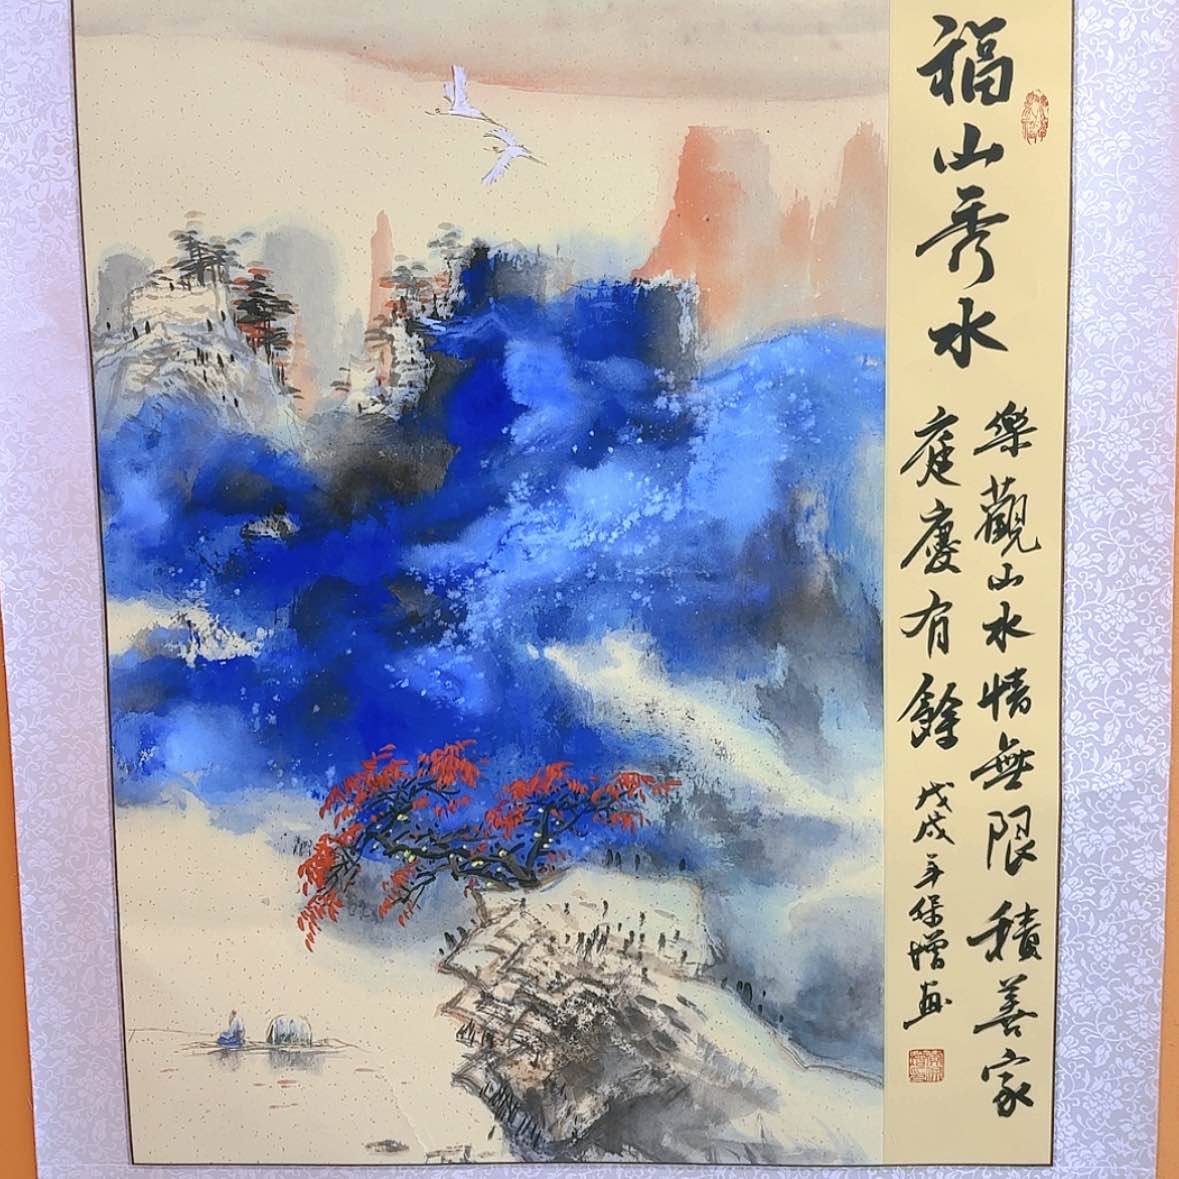 福山秀水
樂觀山水情無限積善家
庭慶有餘
戊戌年保增画